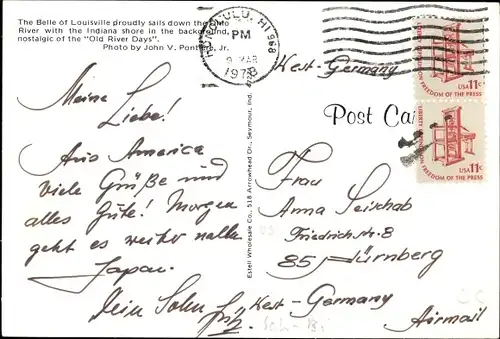 The Belle of Louisville proudly sails down the Ohio
River with the Indiana shore in the background,
nostalgic of the "Old River Days".
Photo by John V. Pontiere, Jr.
HONOLULU, HI 968
PM
9 MAR
1978
USA 11c
LIBERTY DEPENDS ON FREEDOM OF THE PRESS
USA 11c
LIBERTY DEPENDS ON FREEDOM OF THE PRESS
West-Germany
Post Car
Meine
Liebe!
Aus America
viele Grüße und
alles Gute! Morgen
geht es weiter nach
Japan.
Dein Sohn Fritz
Estell Wholesale Co., 518 Arrowhead Dr., Seymour, Ind.
Frau
Anna Seischab
Friedrichstr. 8
85 Nürnberg
West-Germany
Airmail